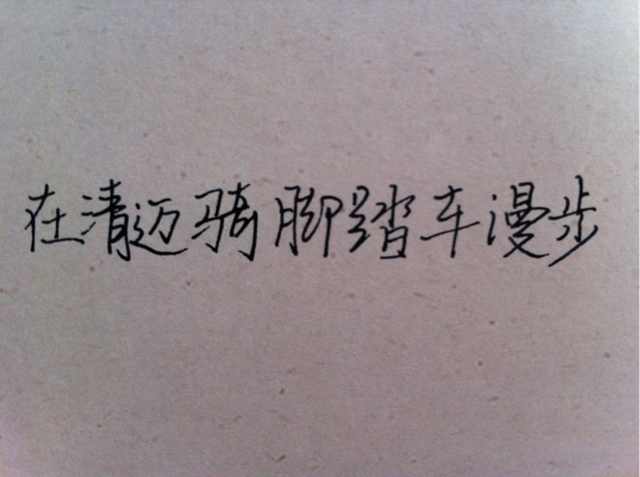 在清迈骑脚踏车漫步